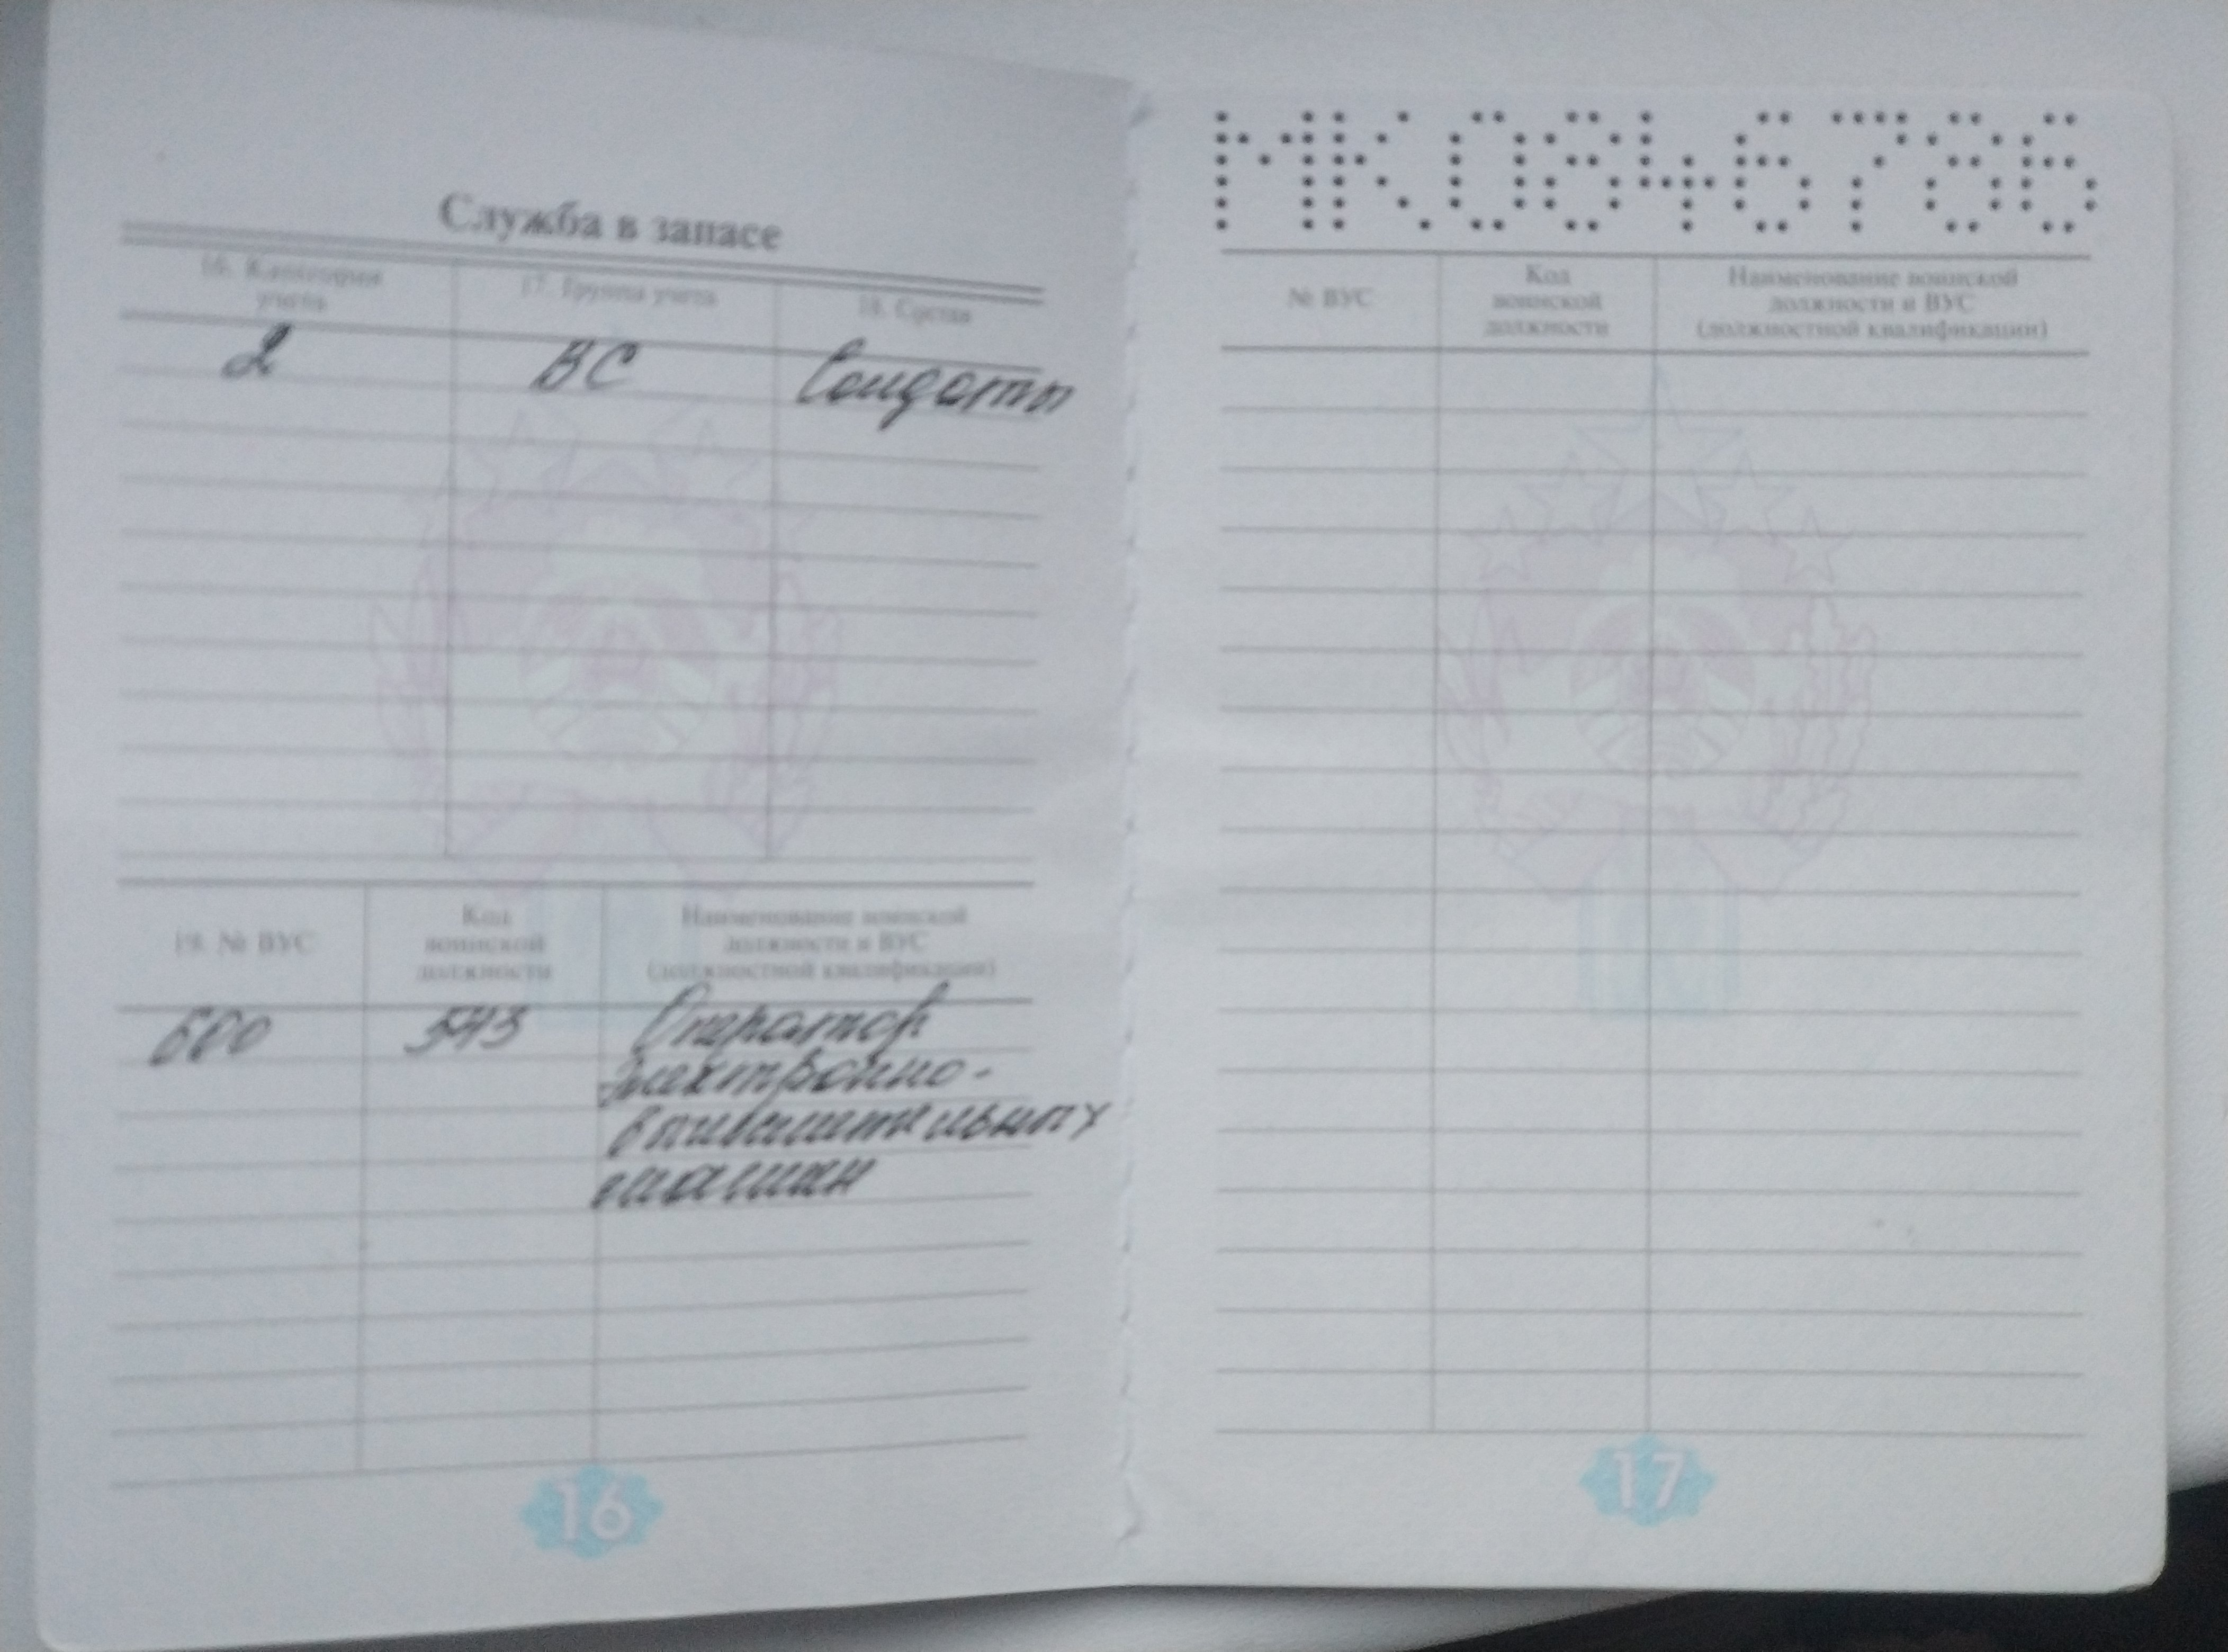 Служба в запасе
16. Категория
учета
17. Группа учета
18. Состав
2
ВС
Солдаты
19. № ВУС
Код
воинской
должности
Наименование воинской
должности и ВУС
(должностной квалификации)
543
Оператор
электронно-
вычислительных
машин
16
№ ВУС
Код
воинской
должности
Наименование воинской
должности и ВУС
(должностной квалификации)
17